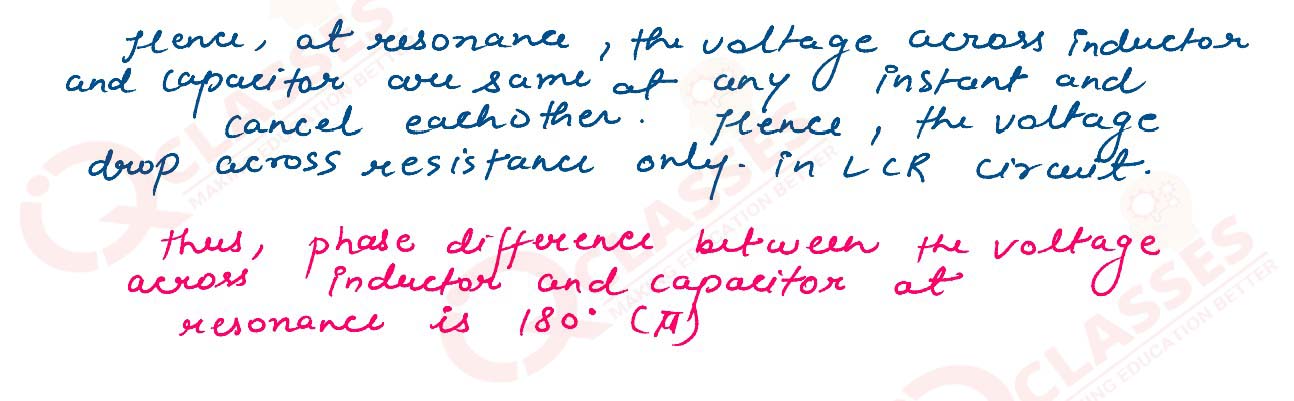 Hence, at resonance, the voltage across inductor
and capacitor are same at any instant and
cancel eachother. Hence, the voltage
drop across resistance only. in LCR circuit.
thus, phase difference between the voltage
across inductor and capacitor at
resonance is 180° (π)
iQ CLASSES
MAKING EDUCATION BETTER
iQ CLASSES
MAKING EDUCATION BETTER
CLASSES
MAKING EDUCATION BETTER